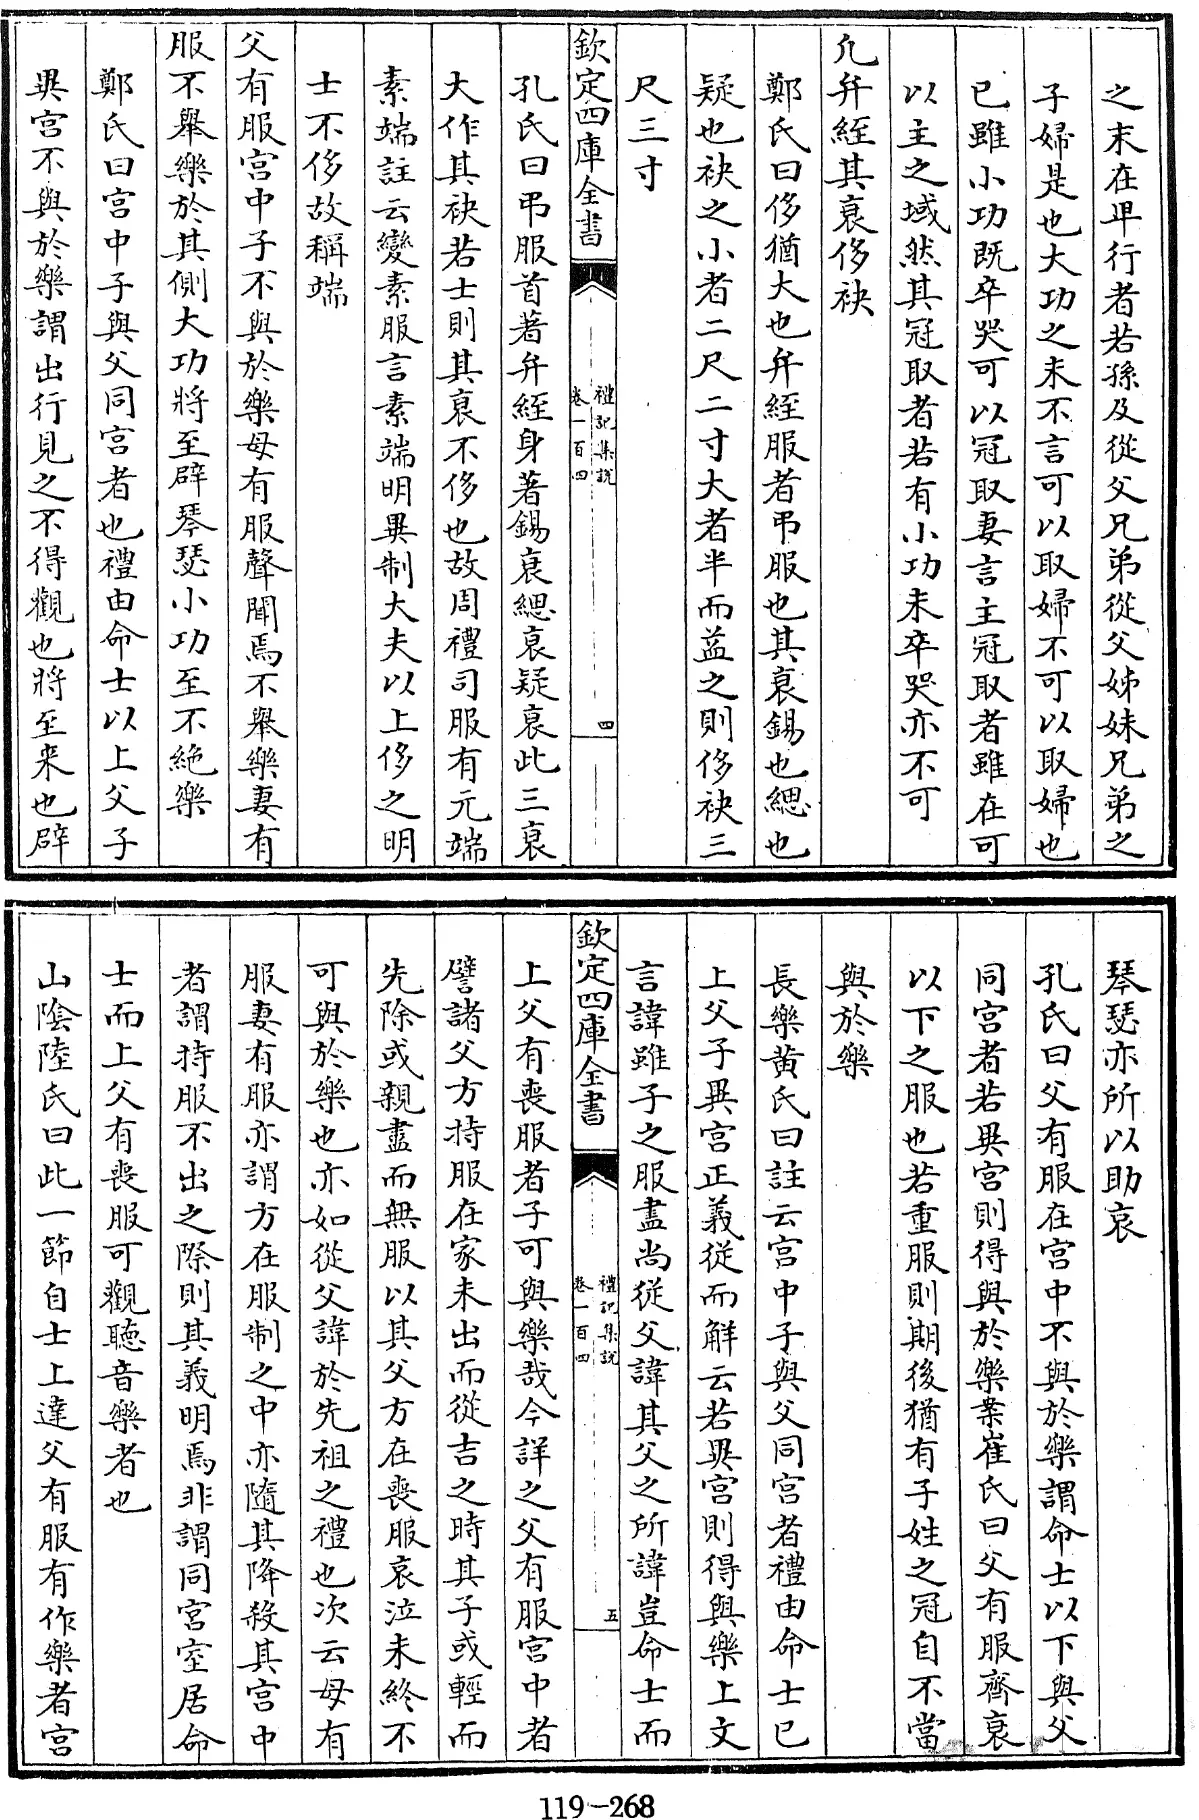 之末在卑行者若孫及從父兄弟從父姊妹兄弟之
子婦是也大功之末不言可以取婦不可以取婦也
已雖小功既卒哭可以冠取妻言主冠取者雖在可
以主之域然其冠取者若有小功未卒哭亦不可
凡弁絰其衰侈袂
鄭氏曰侈猶大也弁絰服者弔服也其衰錫也緦也
疑也袂之小者二尺二寸大者半而益之則侈袂三
尺三寸
欽定四庫全書
禮記集說
卷一百四
四
孔氏曰弔服首著弁絰身著錫衰緦衰疑衰此三衰
大作其袂若士則其衰不侈也故周禮司服有元端
素端註云變素服言素端明異制大夫以上侈之明
士不侈故稱端
父有服宫中子不與於樂母有服聲聞焉不舉樂妻有
服不舉樂於其側大功將至辟琴瑟小功至不絶樂
鄭氏曰宫中子與父同宫者也禮由命士以上父子
異宫不與於樂謂出行見之不得觀也將至來也辟
琴瑟亦所以助哀
孔氏曰父有服在宫中不與於樂謂命士以下與父
同宫者若異宫則得與於樂案崔氏曰父有服齊衰
以下之服也若重服則期後猶有子姓之冠自不當
與於樂
長樂黄氏曰註云宫中子與父同宫者禮由命士已
上父子異宫正義從而解云若異宫則得與樂上文
言諱雖子之服盡尚從父諱其父之所諱豈命士而
欽定四庫全書
禮記集說
卷一百四
五
上父有喪服者子可與樂哉今詳之父有服宫中者
譬諸父方持服在家未出而從吉之時其子或輕而
先除或親盡而無服以其父方在喪服哀泣未終不
可與於樂也亦如從父諱於先祖之禮也次云母有
服妻有服亦謂方在服制之中亦隨其降殺其宫中
者謂持服不出之際則其義明焉非謂同宫室居命
士而上父有喪服可觀聽音樂者也
山陰陸氏曰此一節自士上達父有服有作樂者宫
119-268